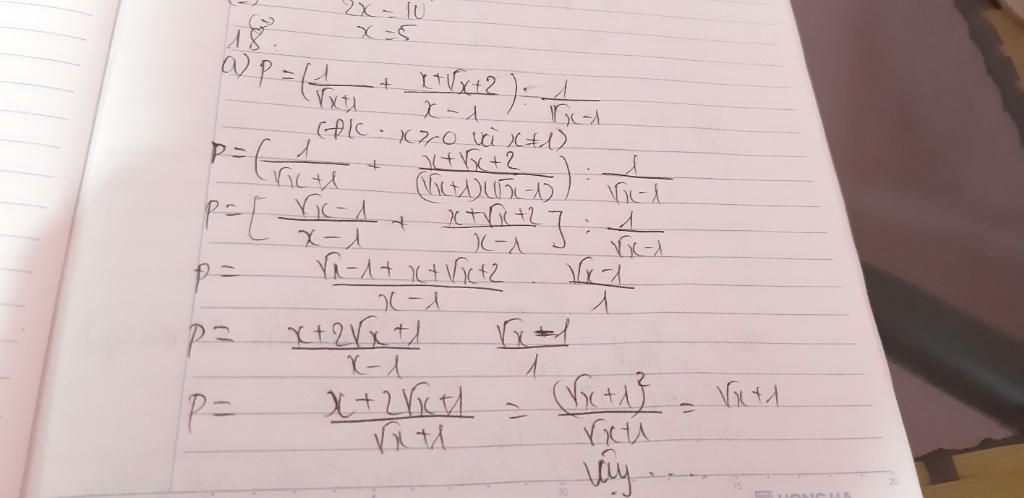 2x - 10
x = 5
18.
a) P = (1/(√x+1) + (x+√x+2)/(x-1)) : 1/(√x-1)
(ĐK : x ≥ 0 và x ≠ 1)
P = (1/(√x+1) + (x+√x+2)/((√x+1)(√x-1))) : 1/(√x-1)
P = [(√x-1)/(x-1) + (x+√x+2)/(x-1)] : 1/(√x-1)
P = (√x-1+x+√x+2)/(x-1) . (√x-1)/1
P = (x+2√x+1)/(x-1) (√x-1)/1
P = (x+2√x+1)/(√x+1) = (√x+1)²/(√x+1) = √x+1
Vậy ....